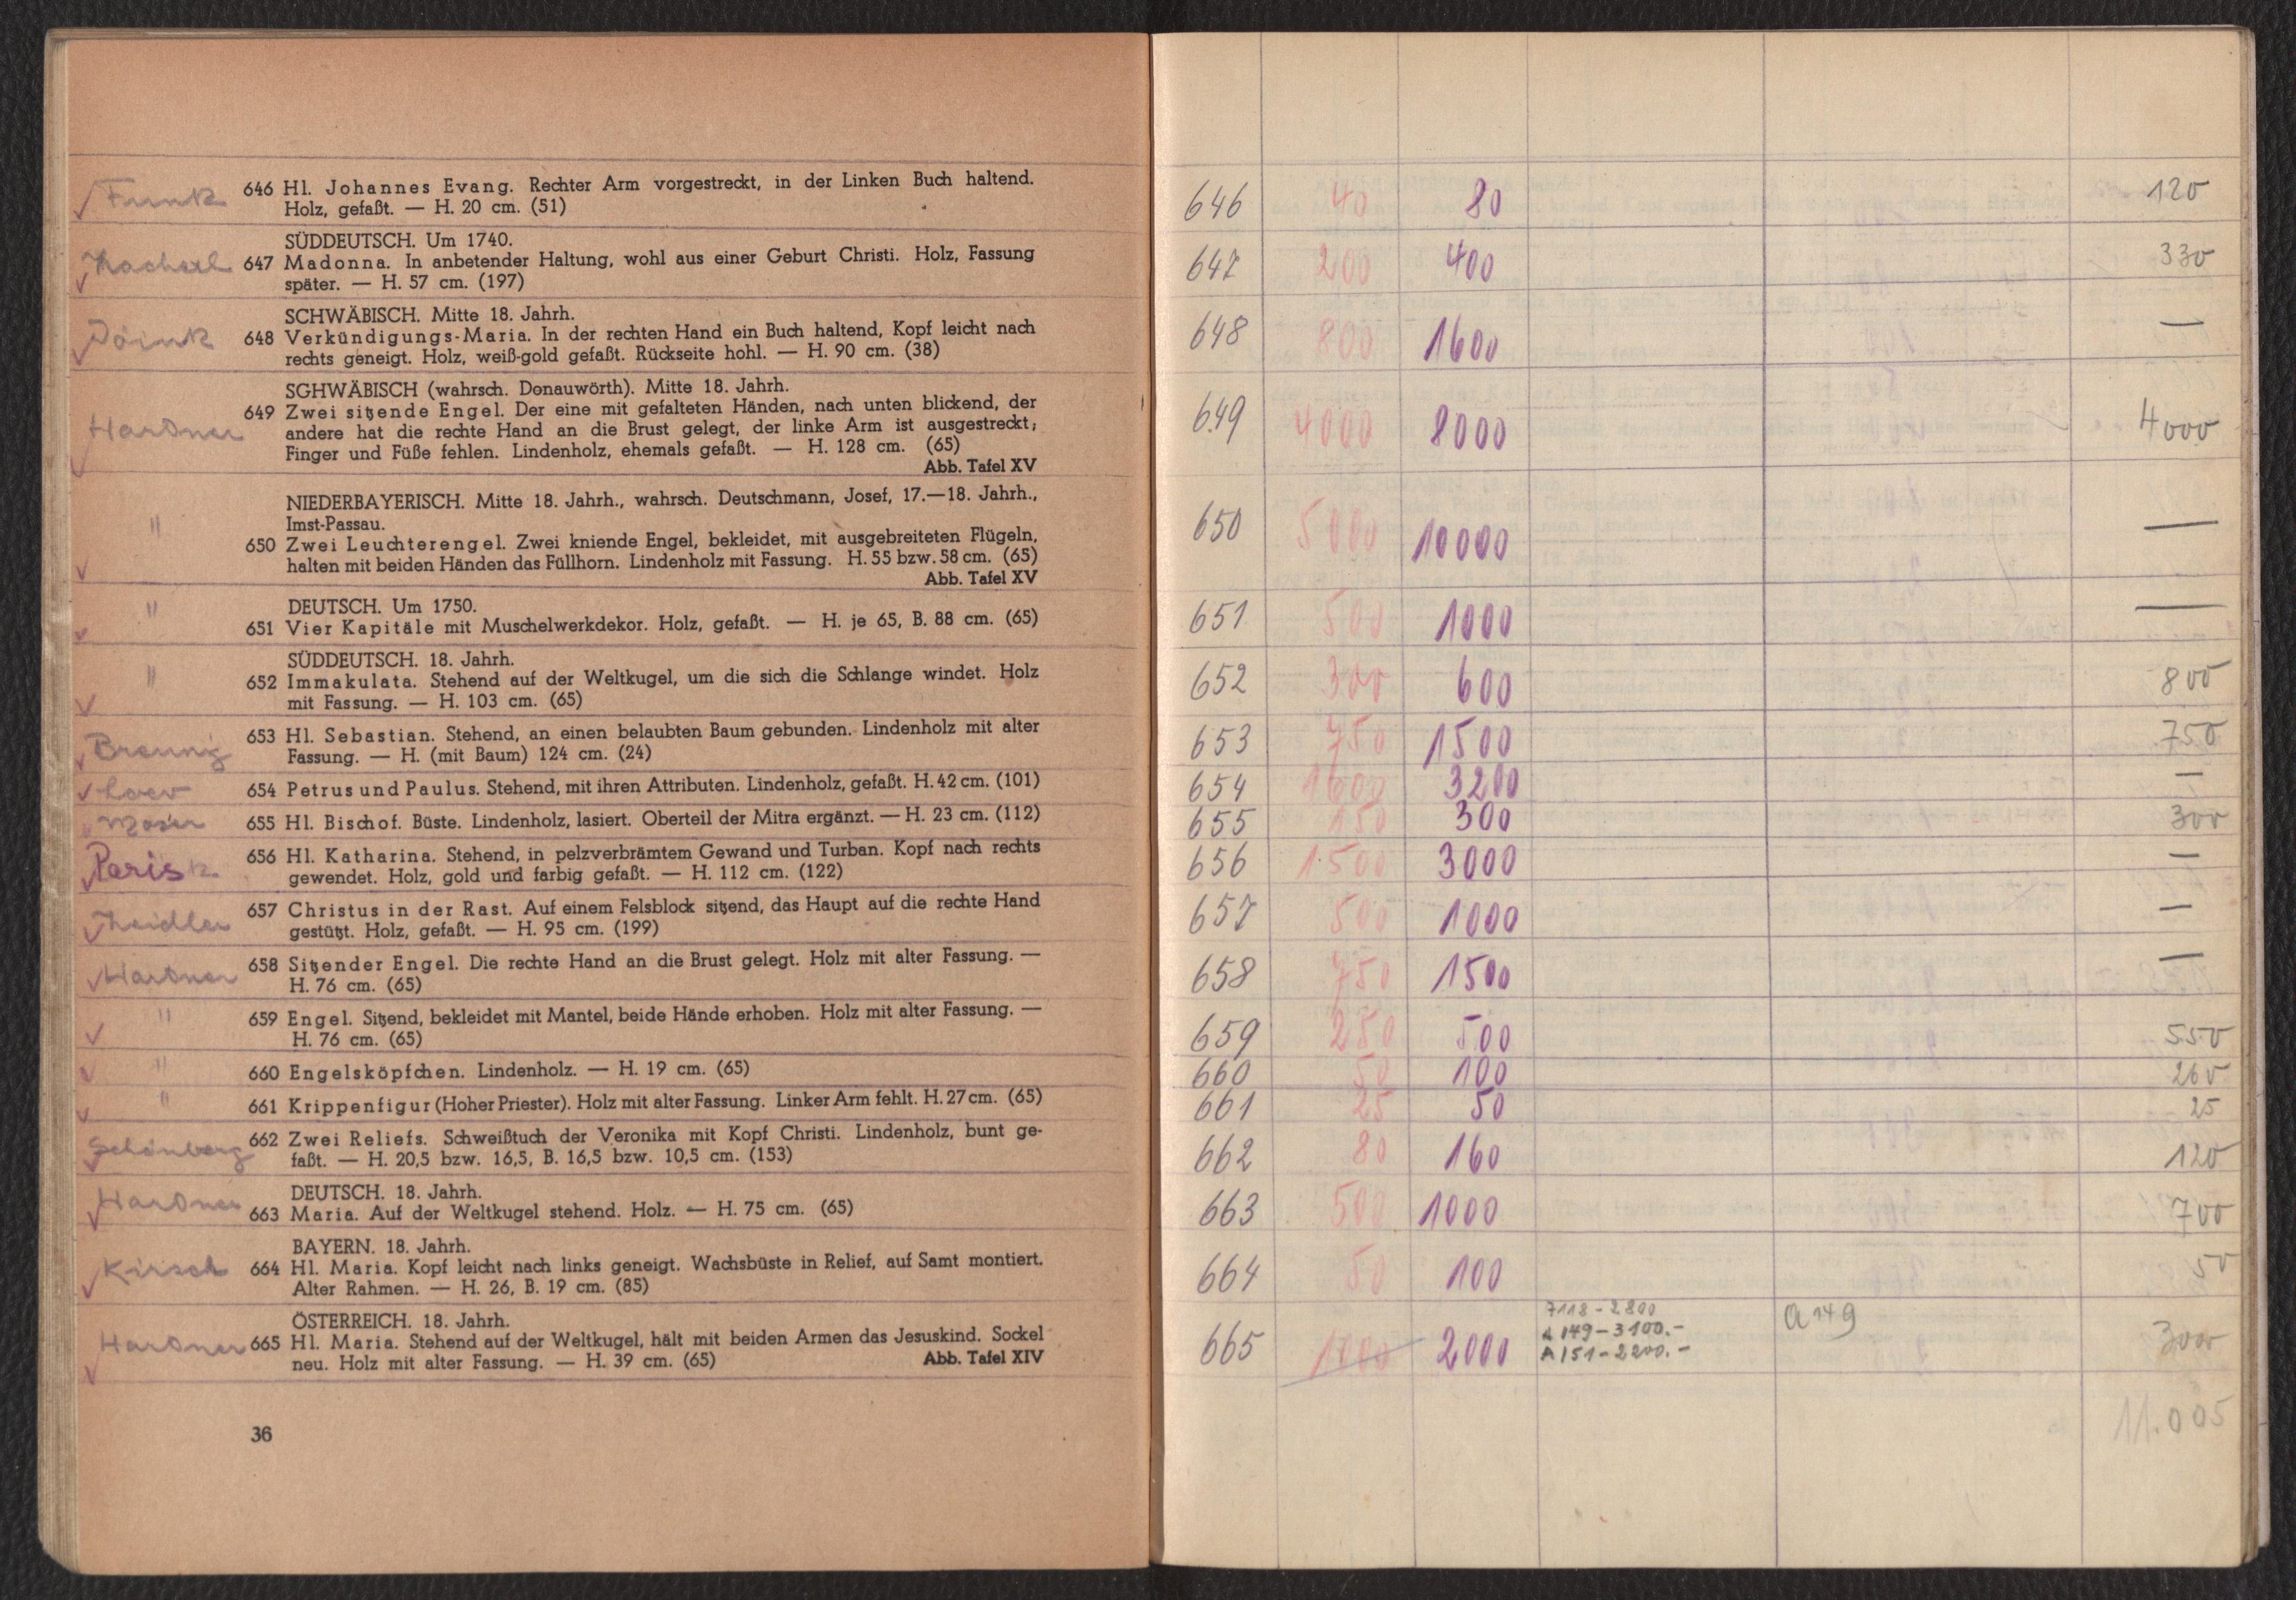 Funk 646 Hl. Johannes Evang. Rechter Arm vorgestreckt, in der Linken Buch haltend.
Holz, gefaßt. — H. 20 cm. (51)
SÜDDEUTSCH. Um 1740.
647 Madonna. In anbetender Haltung, wohl aus einer Geburt Christi. Holz, Fassung
später. — H. 57 cm. (197)
SCHWÄBISCH. Mitte 18. Jahrh.
648 Verkündigungs-Maria. In der rechten Hand ein Buch haltend, Kopf leicht nach
rechts geneigt. Holz, weiß-gold gefaßt. Rückseite hohl. — H. 90 cm. (38)
SGHWÄBISCH (wahrsch. Donauwörth). Mitte 18. Jahrh.
Hardner 649 Zwei sitzende Engel. Der eine mit gefalteten Händen, nach unten blickend, der
andere hat die rechte Hand an die Brust gelegt, der linke Arm ist ausgestreckt;
Finger und Füße fehlen. Lindenholz, ehemals gefaßt. — H. 128 cm. (65)
Abb. Tafel XV
NIEDERBAYERISCH. Mitte 18. Jahrh., wahrsch. Deutschmann, Josef, 17.—18. Jahrh.,
" Imst-Passau.
650 Zwei Leuchterengel. Zwei kniende Engel, bekleidet, mit ausgebreiteten Flügeln,
halten mit beiden Händen das Füllhorn. Lindenholz mit Fassung. H. 55 bzw. 58 cm. (65)
Abb. Tafel XV
" DEUTSCH. Um 1750.
651 Vier Kapitäle mit Muschelwerkdekor. Holz, gefaßt. — H. je 65, B. 88 cm. (65)
SÜDDEUTSCH. 18. Jahrh.
" 652 Immakulata. Stehend auf der Weltkugel, um die sich die Schlange windet. Holz
mit Fassung. — H. 103 cm. (65)
Breunig 653 Hl. Sebastian. Stehend, an einen belaubten Baum gebunden. Lindenholz mit alter
Fassung. — H. (mit Baum) 124 cm. (24)
654 Petrus und Paulus. Stehend, mit ihren Attributen. Lindenholz, gefaßt. H. 42 cm. (101)
Moser 655 Hl. Bischof. Büste. Lindenholz, lasiert. Oberteil der Mitra ergänzt. — H. 23 cm. (112)
Paris 656 Hl. Katharina. Stehend, in pelzverbrämtem Gewand und Turban. Kopf nach rechts
gewendet. Holz, gold und farbig gefaßt. — H. 112 cm. (122)
Zeidler 657 Christus in der Rast. Auf einem Felsblock sitzend, das Haupt auf die rechte Hand
gestützt. Holz, gefaßt. — H. 95 cm. (199)
Hardner 658 Sitzender Engel. Die rechte Hand an die Brust gelegt. Holz mit alter Fassung. —
H. 76 cm. (65)
" 659 Engel. Sitzend, bekleidet mit Mantel, beide Hände erhoben. Holz mit alter Fassung. —
H. 76 cm. (65)
" 660 Engelsköpfchen. Lindenholz. — H. 19 cm. (65)
" 661 Krippenfigur (Hoher Priester). Holz mit alter Fassung. Linker Arm fehlt. H. 27 cm. (65)
Schönberg 662 Zwei Reliefs. Schweißtuch der Veronika mit Kopf Christi. Lindenholz, bunt ge-
faßt. — H. 20,5 bzw. 16,5, B. 16,5 bzw. 10,5 cm. (153)
DEUTSCH. 18. Jahrh.
Hardner 663 Maria. Auf der Weltkugel stehend. Holz. — H. 75 cm. (65)
BAYERN. 18. Jahrh.
Kirsch 664 Hl. Maria. Kopf leicht nach links geneigt. Wachsbüste in Relief, auf Samt montiert.
Alter Rahmen. — H. 26, B. 19 cm. (85)
ÖSTERREICH. 18. Jahrh.
Hardner 665 Hl. Maria. Stehend auf der Weltkugel, hält mit beiden Armen das Jesuskind. Sockel
neu. Holz mit alter Fassung. — H. 39 cm. (65) Abb. Tafel XIV
36
646 40 80 120
647 200 400 330
648 800 1600 —
649 4000 8000 4000
650 5000 10000 —
651 500 1000 —
652 300 600 800
653 750 1500 750
654 1600 3200 —
655 150 300 300
656 1500 3000 —
657 500 1000 —
658 750 1500 —
659 250 500 550
660 50 100 260
661 25 50 25
662 80 160 120
663 500 1000 700
664 50 100 50
7118 - 2800
665 1000 2000 A 149 - 3100.- a 149 3000
A 151 - 2200.-
11.005